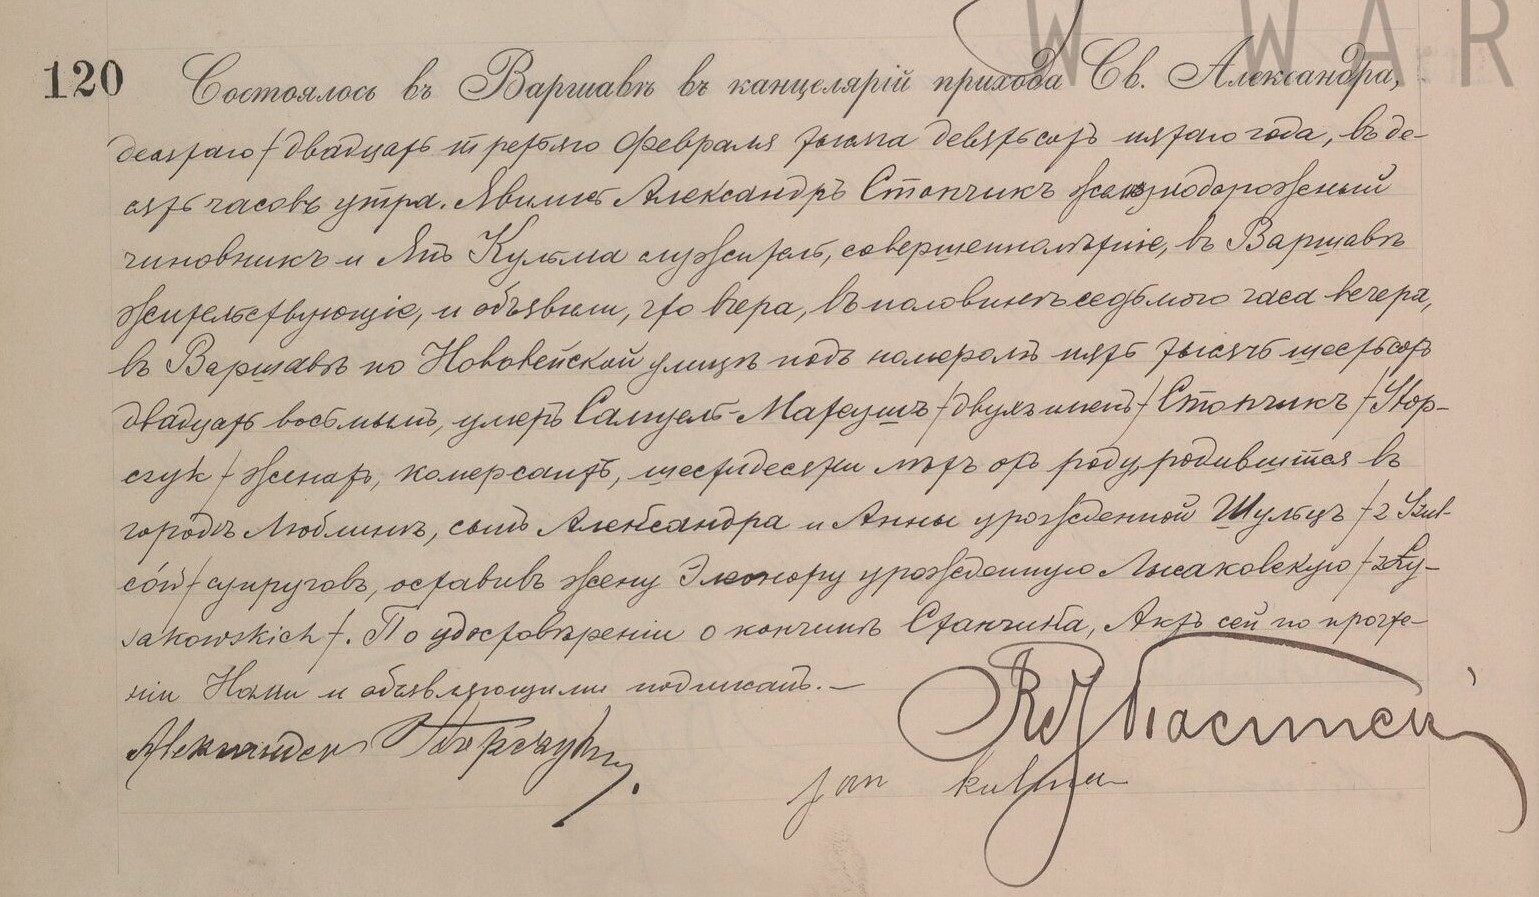 W WAR
120 Состоялось въ Варшавѣ въ канцелярій прихода Св. Александра,
десятаго / двадцать третьяго Февраля тысяча девятьсотъ пятаго года, въ де-
сять часовъ утра. Явились Александръ Стопчикъ железнодорожный
чиновникъ и Янъ Кульма служитель, совершеннолѣтніе, въ Варшавѣ
жительствующіе, и объявили, что вчера, въ половинѣ седьмого часа вечера,
въ Варшавѣ по Нововейской улицѣ подъ номеромъ пять тысячъ шестьсотъ
двадцать восьмымъ, умеръ Самуель-Матеушъ / двухъ именъ / Стопчикъ / Stop-
czyk / женатъ, комерсантъ, шестидесяти лѣтъ отъ роду, родившійся въ
городѣ Люблинѣ, сынъ Александра и Анны урожденной Шульцъ / z Szul-
ców / супруговъ, оставивъ жену Элеонору урожденную Лысаковскую / z Ły-
sakowskich /. По удостовѣреніи о кончинѣ Стопчика, Актъ сей по прочте-
ніи Нами и объявляющими подписанъ.—
Aleksander Stopczyk
Jan Kulma